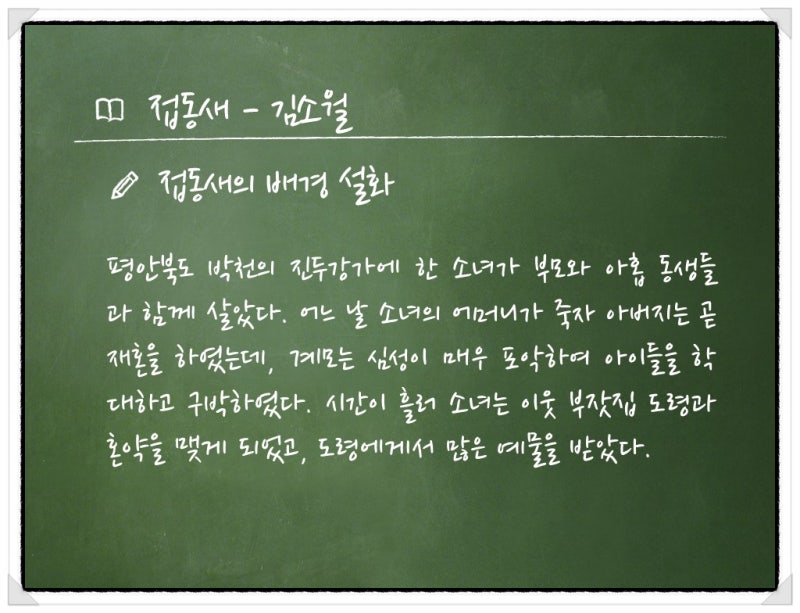 접동새 - 김소월
접동새의 배경 설화
평안북도 박천의 진두강가에 한 소녀가 부모와 아홉 동생들
과 함께 살았다. 어느 날 소녀의 어머니가 죽자 아버지는 곧
재혼을 하였는데, 계모는 심성이 매우 포악하여 아이들을 학
대하고 구박하였다. 시간이 흘러 소녀는 이웃 부잣집 도령과
혼약을 맺게 되었고, 도령에게서 많은 예물을 받았다.